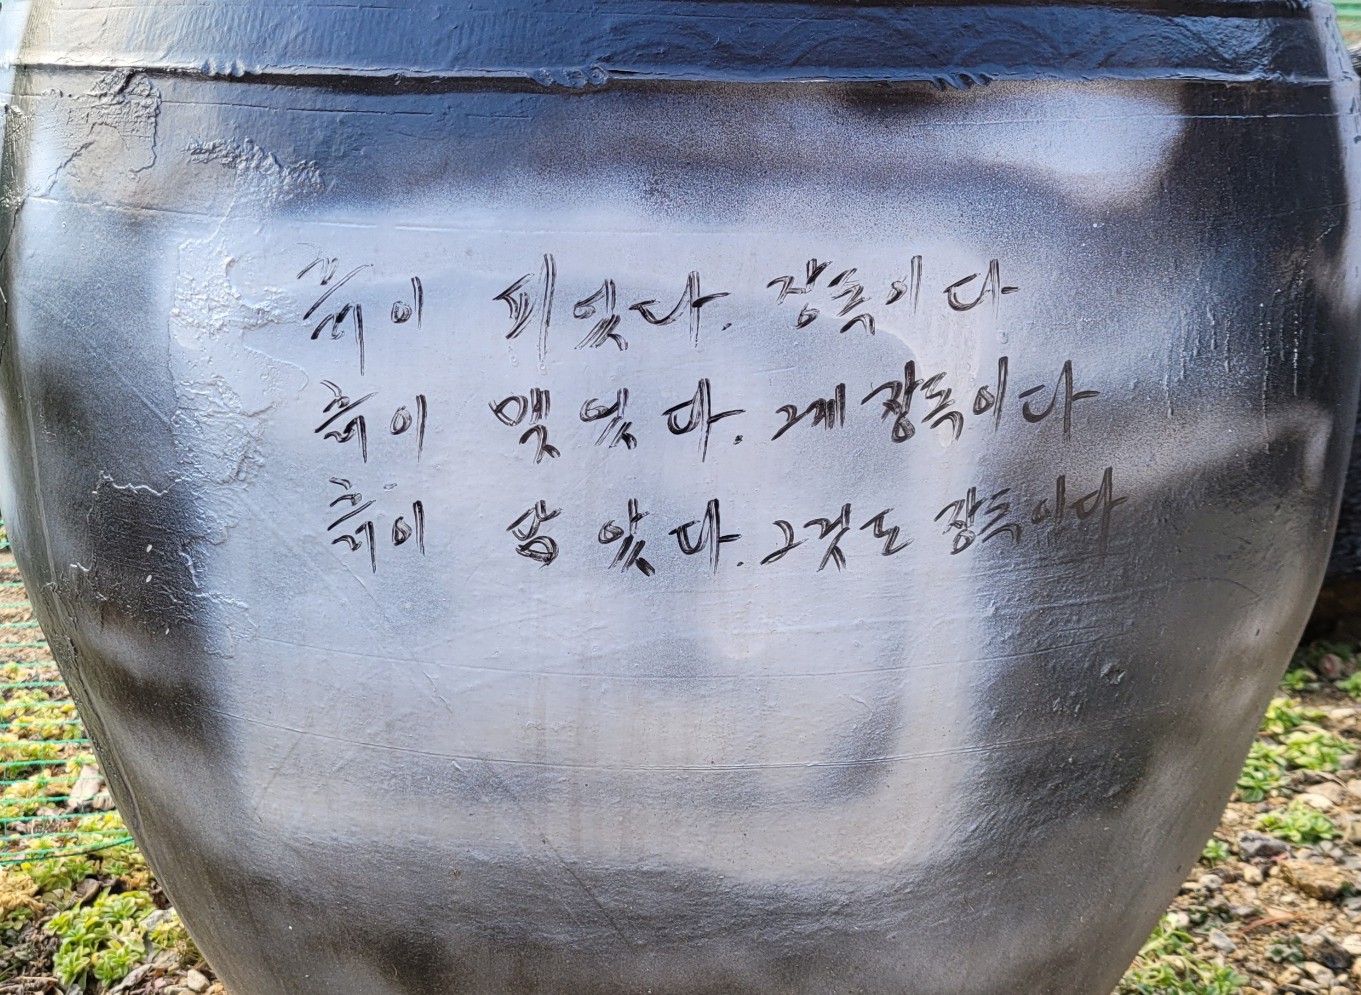 흙이 피었다. 장독이다
흙이 맺었다. 그게 장독이다
흙이 담았다. 그것도 장독이다